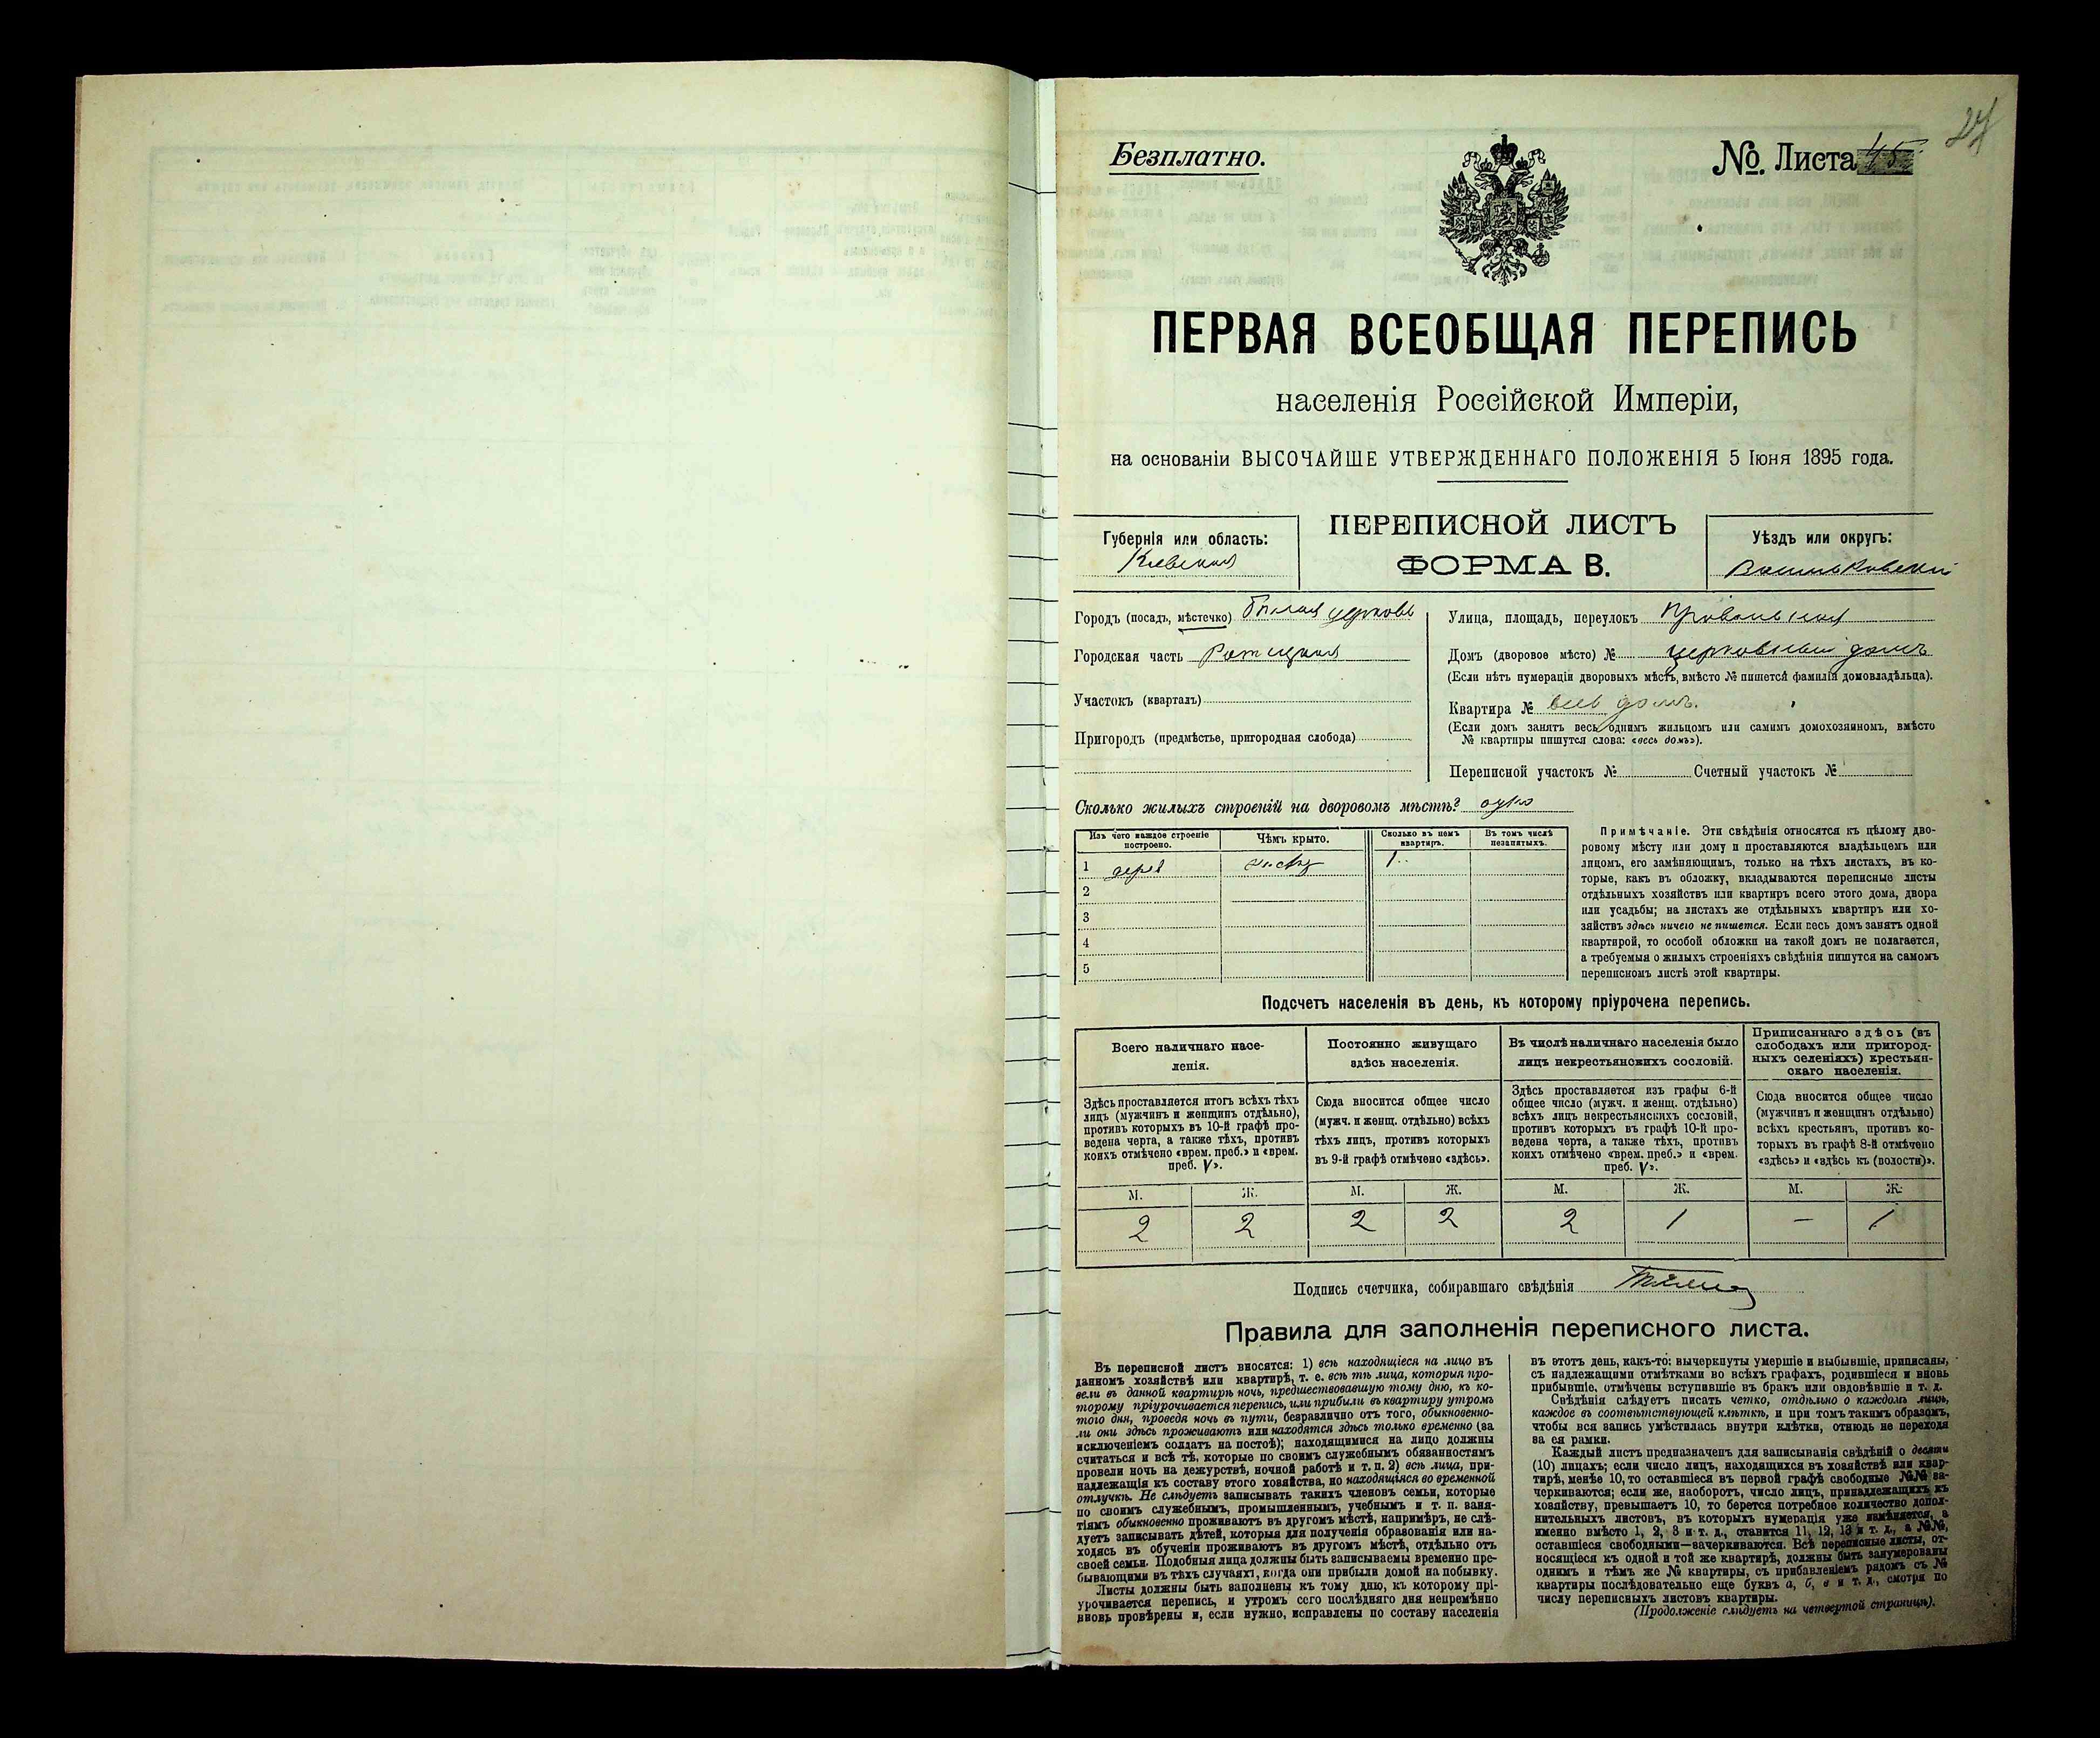 Безплатно.
№. Листа 45
27
ПЕРВАЯ ВСЕОБЩАЯ ПЕРЕПИСЬ
населенія Россійской Имперіи,
на основаніи ВЫСОЧАЙШЕ УТВЕРЖДЕННАГО ПОЛОЖЕНІЯ 5 Іюня 1895 года.
ПЕРЕПИСНОЙ ЛИСТЪ
ФОРМА В.
Губернія или область:
Кіевская
Уѣздъ или округъ:
Васильковскій
Городъ (посадъ, мѣстечко) Бѣлая церковь
Городская часть
Участокъ (кварталъ)
Пригородъ (предмѣстье, пригородная слобода)
Улица, площадь, переулокъ
Домъ (дворовое мѣсто) № церковный домъ
(Если нѣтъ нумераціи дворовыхъ мѣстъ, вмѣсто № пишется фамилія домовладѣльца).
Квартира № весь домъ.
(Если домъ занятъ весь однимъ жильцомъ или самимъ домохозяиномъ, вмѣсто
№ квартиры пишутся слова: «весь домъ»).
Переписной участокъ № Счетный участокъ №
Сколько жилыхъ строеній на дворовомъ мѣстѣ? одно
Изъ чего каждое строеніе
построено.
Чѣмъ крыто.
Сколько въ немъ
квартиръ.
Въ томъ числѣ
незанятыхъ.
1 дерев 1
2
3
4
5
Примѣчаніе. Эти свѣдѣнія относятся къ цѣлому дво-
ровому мѣсту или дому и проставляются владѣльцемъ или
лицомъ, его замѣняющимъ, только на тѣхъ листахъ, въ ко-
торые, какъ въ обложку, вкладываются переписные листы
отдѣльныхъ хозяйствъ или квартиръ всего этого дома, двора
или усадьбы; на листахъ же отдѣльныхъ квартиръ или хо-
зяйствъ здѣсь ничего не пишется. Если весь домъ занятъ одной
квартирой, то особой обложки на такой домъ не полагается,
а требуемыя о жилыхъ строеніяхъ свѣдѣнія пишутся на самомъ
переписномъ листѣ этой квартиры.
Подсчетъ населенія въ день, къ которому пріурочена перепись.
Всего наличнаго насе-
ленія.
Здѣсь проставляется итогъ всѣхъ тѣхъ
лицъ (мужчинъ и женщинъ отдѣльно),
противъ которыхъ въ 10-й графѣ про-
ведена черта, а также тѣхъ, противъ
коихъ отмѣчено «врем. преб.» и «врем.
преб. V».
Постоянно живущаго
здѣсь населенія.
Сюда вносится общее число
(мужч. и женщ. отдѣльно) всѣхъ
тѣхъ лицъ, противъ которыхъ
въ 9-й графѣ отмѣчено «здѣсь».
Въ числѣ наличнаго населенія было
лицъ некрестьянскихъ сословій.
Здѣсь проставляется изъ графы 6-й
общее число (мужч. и женщ. отдѣльно)
всѣхъ лицъ некрестьянскихъ сословій,
противъ которыхъ въ графѣ 10-й про-
ведена черта, а также тѣхъ, противъ
коихъ отмѣчено «врем. преб.» и «врем.
преб. V».
Приписаннаго здѣсь (въ
слободахъ или пригород-
ныхъ селеніяхъ) крестьян-
скаго населенія.
Сюда вносится общее число
(мужчинъ и женщинъ отдѣльно)
всѣхъ крестьянъ, противъ ко-
торыхъ въ графѣ 8-й отмѣчено
«здѣсь» и «здѣсь къ (волости)».
М. Ж. М. Ж. М. Ж. М. Ж.
2 2 2 2 2 1 — 1
Подпись счетчика, собиравшаго свѣдѣнія
Правила для заполненія переписного листа.
Въ переписной листъ вносятся: 1) всѣ находящіеся на лицо въ
данномъ хозяйствѣ или квартирѣ, т. е. всѣ тѣ лица, которыя про-
вели въ данной квартирѣ ночь, предшествовавшую тому дню, къ ко-
торому пріурочивается перепись, или прибыли въ квартиру утромъ
того дня, проведя ночь въ пути, безразлично отъ того, обыкновенно-
ли они здѣсь проживаютъ или находятся здѣсь только временно (за
исключеніемъ солдатъ на постоѣ); находящимися на лицо должны
считаться и всѣ тѣ, которые по своимъ служебнымъ обязанностямъ
провели ночь на дежурствѣ, ночной работѣ и т. п. 2) всѣ лица, при-
надлежащія къ составу этого хозяйства, но находящіяся во временной
отлучкѣ. Не слѣдуетъ записывать такихъ членовъ семьи, которые
по своимъ служебнымъ, промышленнымъ, учебнымъ и т. п. заня-
тіямъ обыкновенно проживаютъ въ другомъ мѣстѣ, напримѣръ, не слѣ-
дуетъ записывать дѣтей, которыя для полученія образованія или на-
ходясь въ обученіи проживаютъ въ другомъ мѣстѣ, отдѣльно отъ
своей семьи. Подобныя лица должны быть записываемы временно пре-
бывающими въ тѣхъ случаяхъ, когда они прибыли домой на побывку.
Листы должны быть заполнены къ тому дню, къ которому прі-
урочивается перепись, и утромъ сего послѣдняго дня непремѣнно
вновь провѣрены и, если нужно, исправлены по составу населенія
въ этотъ день, какъ-то: вычеркнуты умершіе и выбывшіе, приписаны,
съ надлежащими отмѣтками во всѣхъ графахъ, родившіеся и вновь
прибывшіе, отмѣчены вступившіе въ бракъ или овдовѣвшіе и т. д.
Свѣдѣнія слѣдуетъ писать четко, отдѣльно о каждомъ лицѣ,
каждое въ соотвѣтствующей клѣткѣ, и при томъ такимъ образомъ,
чтобы вся запись умѣстилась внутри клѣтки, отнюдь не переходя
за ея рамки.
Каждый листъ предназначенъ для записыванія свѣдѣній о десяти
(10) лицахъ; если число лицъ, находящихся въ хозяйствѣ или квар-
тирѣ, менѣе 10, то оставшіеся въ первой графѣ свободные №№ за-
черкиваются; если же, наоборотъ, число лицъ, принадлежащихъ къ
хозяйству, превышаетъ 10, то берется потребное количество допол-
нительныхъ листовъ, въ которыхъ нумерація уже измѣняется, а
именно вмѣсто 1, 2, 3 и т. д., ставится 11, 12, 13 и т. д., а №№,
оставшіеся свободными—зачеркиваются. Всѣ переписные листы, от-
носящіеся къ одной и той же квартирѣ, должны быть занумерованы
однимъ и тѣмъ же № квартиры, съ прибавленіемъ рядомъ съ №
квартиры послѣдовательно еще буквъ а, б, в и т. д., смотря по
числу переписныхъ листовъ квартиры.
(Продолженіе слѣдуетъ на четвертой страницѣ).